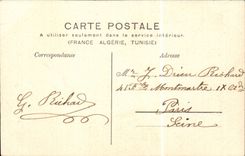 CARTE POSTALE
A utiliser seulement dans le service intérieur.
(FRANCE ALGÉRIE, TUNISIE)
Correspondance
Adresse
Mr J. Drieu Richard
G. Richard
Montmartre
Paris
Seine